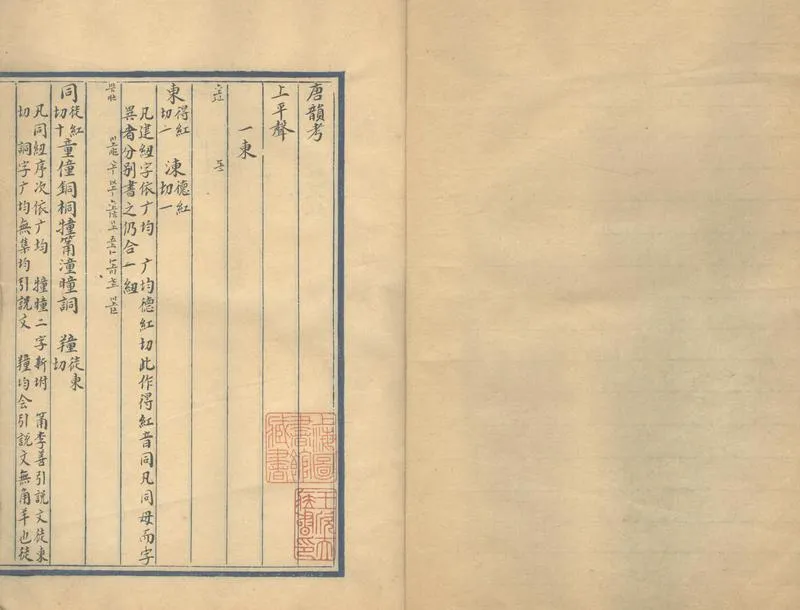 唐韻考
上平聲
一東
東 得紅切一 涷 德紅切一
凡建紐字依广均 广均德紅切此作得紅音同凡同母而字
異者分別書之仍合一紐
同 徒紅切十 童僮銅桐犝筩潼曈詷 𦏆 徒東切
凡同紐序次依广均 犝曈二字新坿 筩李善引說文徒東
切 詷字广均無集均引說文 𦏆均会引說文無角羊也徒
上海圖書館藏書